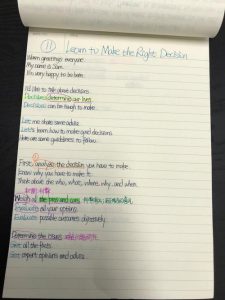 ⑪ Learn to Make the Right Decision
Warm greetings everyone.
My name is Sam.
I'm very happy to be here.
I'd like to talk about decisions.
Decisions determine our lives.
Decisions can be tough to make.
Let me share some advice.
Let's learn how to make good decisions.
Here are some guidelines to follow.
First, analyze the decision you have to make.
Know why you have to make it.
Think about the who, what, where, why and when.
Weigh all the pros and cons
Evaluate all your options.
Evaluate possible outcomes objectively.
Determine the issues
Get all the facts.
Get expert opinions and advice.